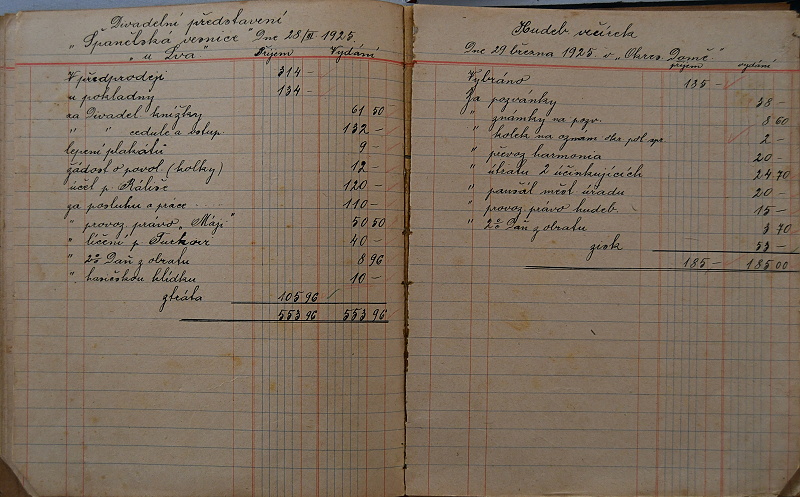 Divadelní představení
"Španělská vesnice" Dne 28/III 1925
"u Lva" Příjem Vydání
V předprodeji 314 –
u pokladny 134 –
za Divadel knížky 61 50
" " cedule a vstup. 132 –
lepení plakátů 9 –
žádost o povol. (kolky) 12 –
účet p. 120 –
za posluhu a práce 110 –
" provoz. právo "Máji" 50 50
" líčení p. 40 –
" 2% Daň z obratu 8 96
" hasičskou hlídku 10 –
ztráta 105 96
553 96 553 96
Hudeb. večírek
Dne 29 března 1925. v "Okres. Domě."
příjem vydání
Vybráno 185 –
Za pozvánky 38 –
" známky na pozv. 8 60
" kolek na oznám. okr. pol. spr. 2 –
" převoz harmonia 20 –
" útratu 2 účinkujících 24 70
" paušál měst. úřadu 20 –
" provoz. právo hudeb. 15 –
" 2% Daň z obratu 3 70
zisk 53 –
185 – 185 00